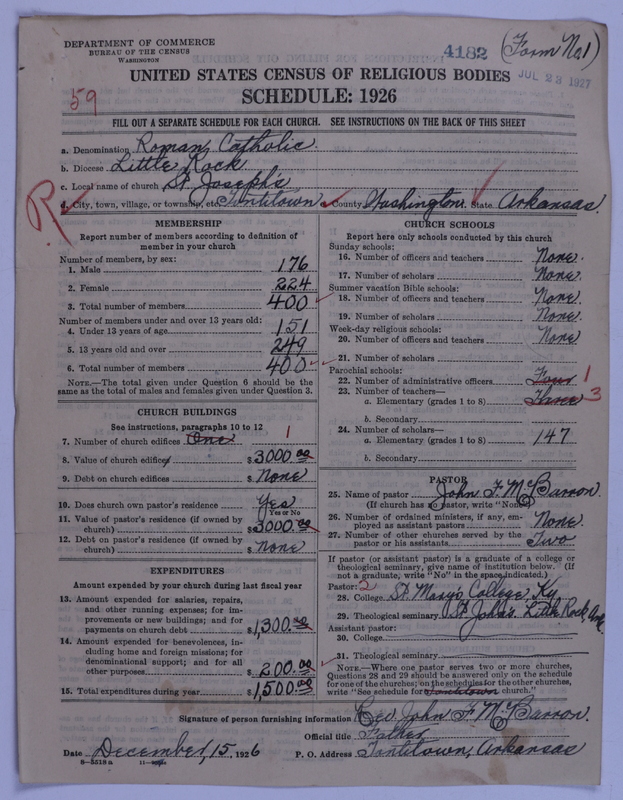 DEPARTMENT OF COMMERCE
BUREAU OF THE CENSUS
WASHINGTON
4182
(Form No1)
JUL 23 1927
UNITED STATES CENSUS OF RELIGIOUS BODIES
SCHEDULE: 1926
59
FILL OUT A SEPARATE SCHEDULE FOR EACH CHURCH. SEE INSTRUCTIONS ON THE BACK OF THIS SHEET
a. Denomination Roman Catholic
b. Diocese Little Rock
c. Local name of church St. Joseph's
R
d. City, town, village, or township, etc. Tontitown County Washington. State Arkansas.
MEMBERSHIP
Report number of members according to definition of
member in your church
Number of members, by sex:
1. Male 176
2. Female 224
3. Total number of members 400
Number of members under and over 13 years old:
4. Under 13 years of age 151
5. 13 years old and over 249
6. Total number of members 400
NOTE.—The total given under Question 6 should be the
same as the total of males and females given under Question 3.
CHURCH BUILDINGS
See instructions, paragraphs 10 to 12
7. Number of church edifices One 1
8. Value of church edifices $ 3000.00
9. Debt on church edifices $ None
10. Does church own pastor's residence Yes
Yes or No
11. Value of pastor's residence (if owned by
church) $ 3000.00
12. Debt on pastor's residence (if owned by
church) $ None
EXPENDITURES
Amount expended by your church during last fiscal year
13. Amount expended for salaries, repairs,
and other running expenses; for im-
provements or new buildings; and for
payments on church debt $ 1,300.00
14. Amount expended for benevolences, in-
cluding home and foreign missions; for
denominational support; and for all
other purposes $ 200.00
15. Total expenditures during year $ 1,500.00
CHURCH SCHOOLS
Report here only schools conducted by this church
Sunday schools:
16. Number of officers and teachers None.
17. Number of scholars None.
Summer vacation Bible schools:
18. Number of officers and teachers None.
19. Number of scholars None.
Week-day religious schools:
20. Number of officers and teachers None
21. Number of scholars
Parochial schools:
22. Number of administrative officers Four 1
23. Number of teachers—
a. Elementary (grades 1 to 8) Three 3
b. Secondary
24. Number of scholars—
a. Elementary (grades 1 to 8) 147
b. Secondary
PASTOR
25. Name of pastor John F. McBarron.
(If church has no pastor, write "None")
26. Number of ordained ministers, if any, em-
ployed as assistant pastors None.
27. Number of other churches served by the
pastor or his assistants Two
If pastor (or assistant pastor) is a graduate of a college or
theological seminary, give name of institution below. (If
not a graduate, write "No" in the space indicated.)
Pastor: 2
28. College St. Mary's College, Ky
29. Theological seminary St. John's. Little Rock, Ark.
Assistant pastor:
30. College
31. Theological seminary
NOTE.—Where one pastor serves two or more churches,
Questions 28 and 29 should be answered only on the schedule
for one of the churches; on the schedules for the other churches,
write "See schedule for Tontitown church."
Signature of person furnishing information Rev. John F. McBarron.
Official title Father
Date December, 15, 1926 P. O. Address Tontitown, Arkansas
8—3518a